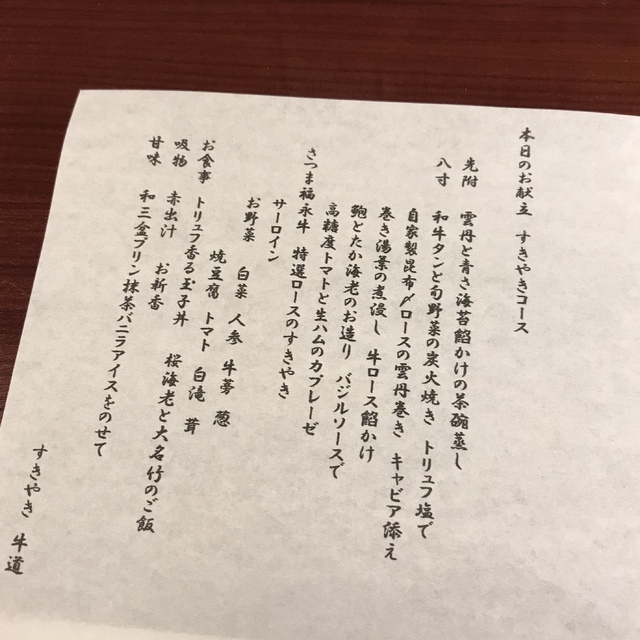 本日のお献立 すきやきコース
先附 雲丹と青さ海苔餡かけの茶碗蒸し
八寸 和牛タンと旬野菜の炭火焼き トリュフ塩で
自家製昆布〆ロースの雲丹巻き キャビア添え
巻き湯葉の煮浸し 牛ロース餡かけ
鮑とたか海老のお造り バジルソースで
高糖度トマトと生ハムのカプレーゼ
さつま福永牛 特選ロースのすきやき
サーロイン
お野菜 白菜 人参 牛蒡 葱
焼豆腐 トマト 白滝 茸
お食事 トリュフ香る玉子丼 桜海老と大名竹のご飯
吸物 赤出汁 お新香
甘味 和三盆プリン抹茶バニラアイスをのせて
すきやき 牛道